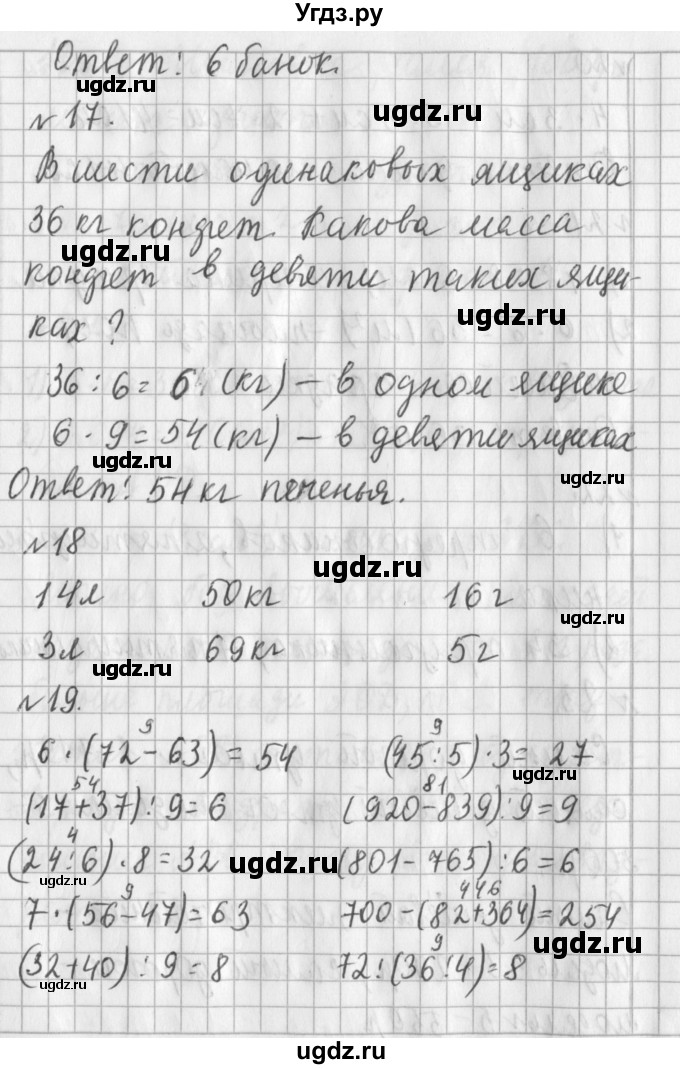 Угдз.ру
Ответ: 6 банок.
ugdz.ru
ugdz.ru
№17.
В шести одинаковых ящиках
36 кг конфет. Какова масса
ugdz.ru
конфет в девяти таких ящи-
ugdz.ru
ках?
36 : 6 = 6 (кг) – в одном ящике
6 · 9 = 54 (кг) – в девяти ящиках
ugdz.ru
ugdz.ru
Ответ: 54 кг печенья.
№18
ugdz.ru
14л 50кг 16г
ugdz.ru
3л 69кг 5г
ugdz.ru
№19.
9 9
6 · (72 – 63) = 54 (45 : 5) · 3 = 27
ugdz.ru
54 81
(17 + 37) : 9 = 6 (920 – 839) : 9 = 9
4
(24 : 6) · 8 = 32 ugdz.ru (801 – 765) : 6 = 6
ugdz.ru
9 446
7 · (56 – 47) = 63 700 – (82 + 364) = 254
ugdz.ru
9
(32 + 40) : 9 = 8 72 : (36 : 4) = 8
ugdz.ru
ugdz.ru